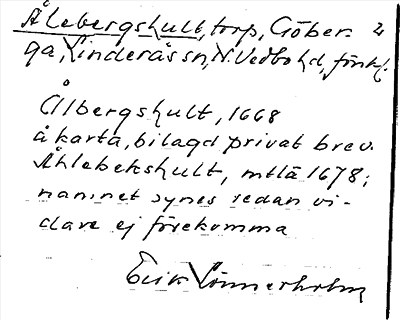 Ålebergshult, torp, Göber- 2
ga, Linderås sn, N. Vedbo hd, Jönk.l.
Ålbergshult, 1668
å karta, bilagd privat brev.
Åhlebekshult, mtlä 1678;
namnet synes sedan vi-
dare ej förekomma
Erik Lönnerholm